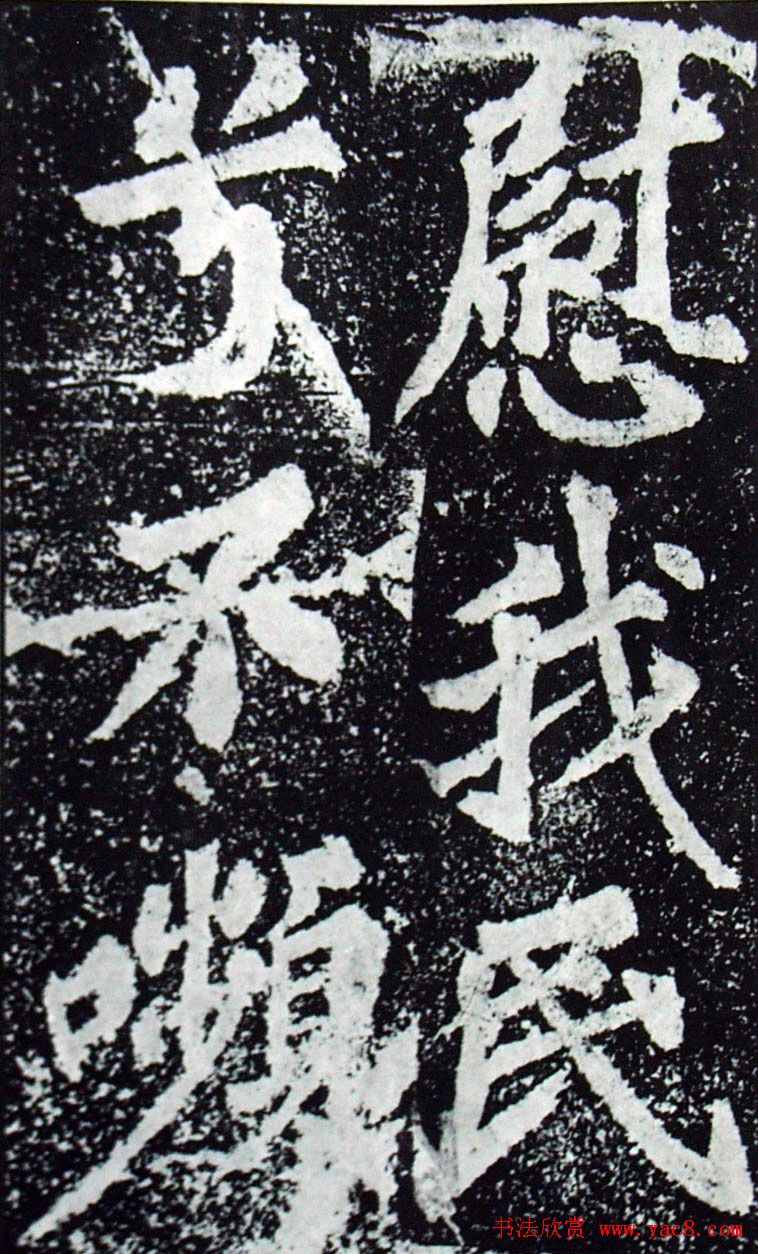 慰我民
兮不嚬
书法欣赏 www.yac8.com